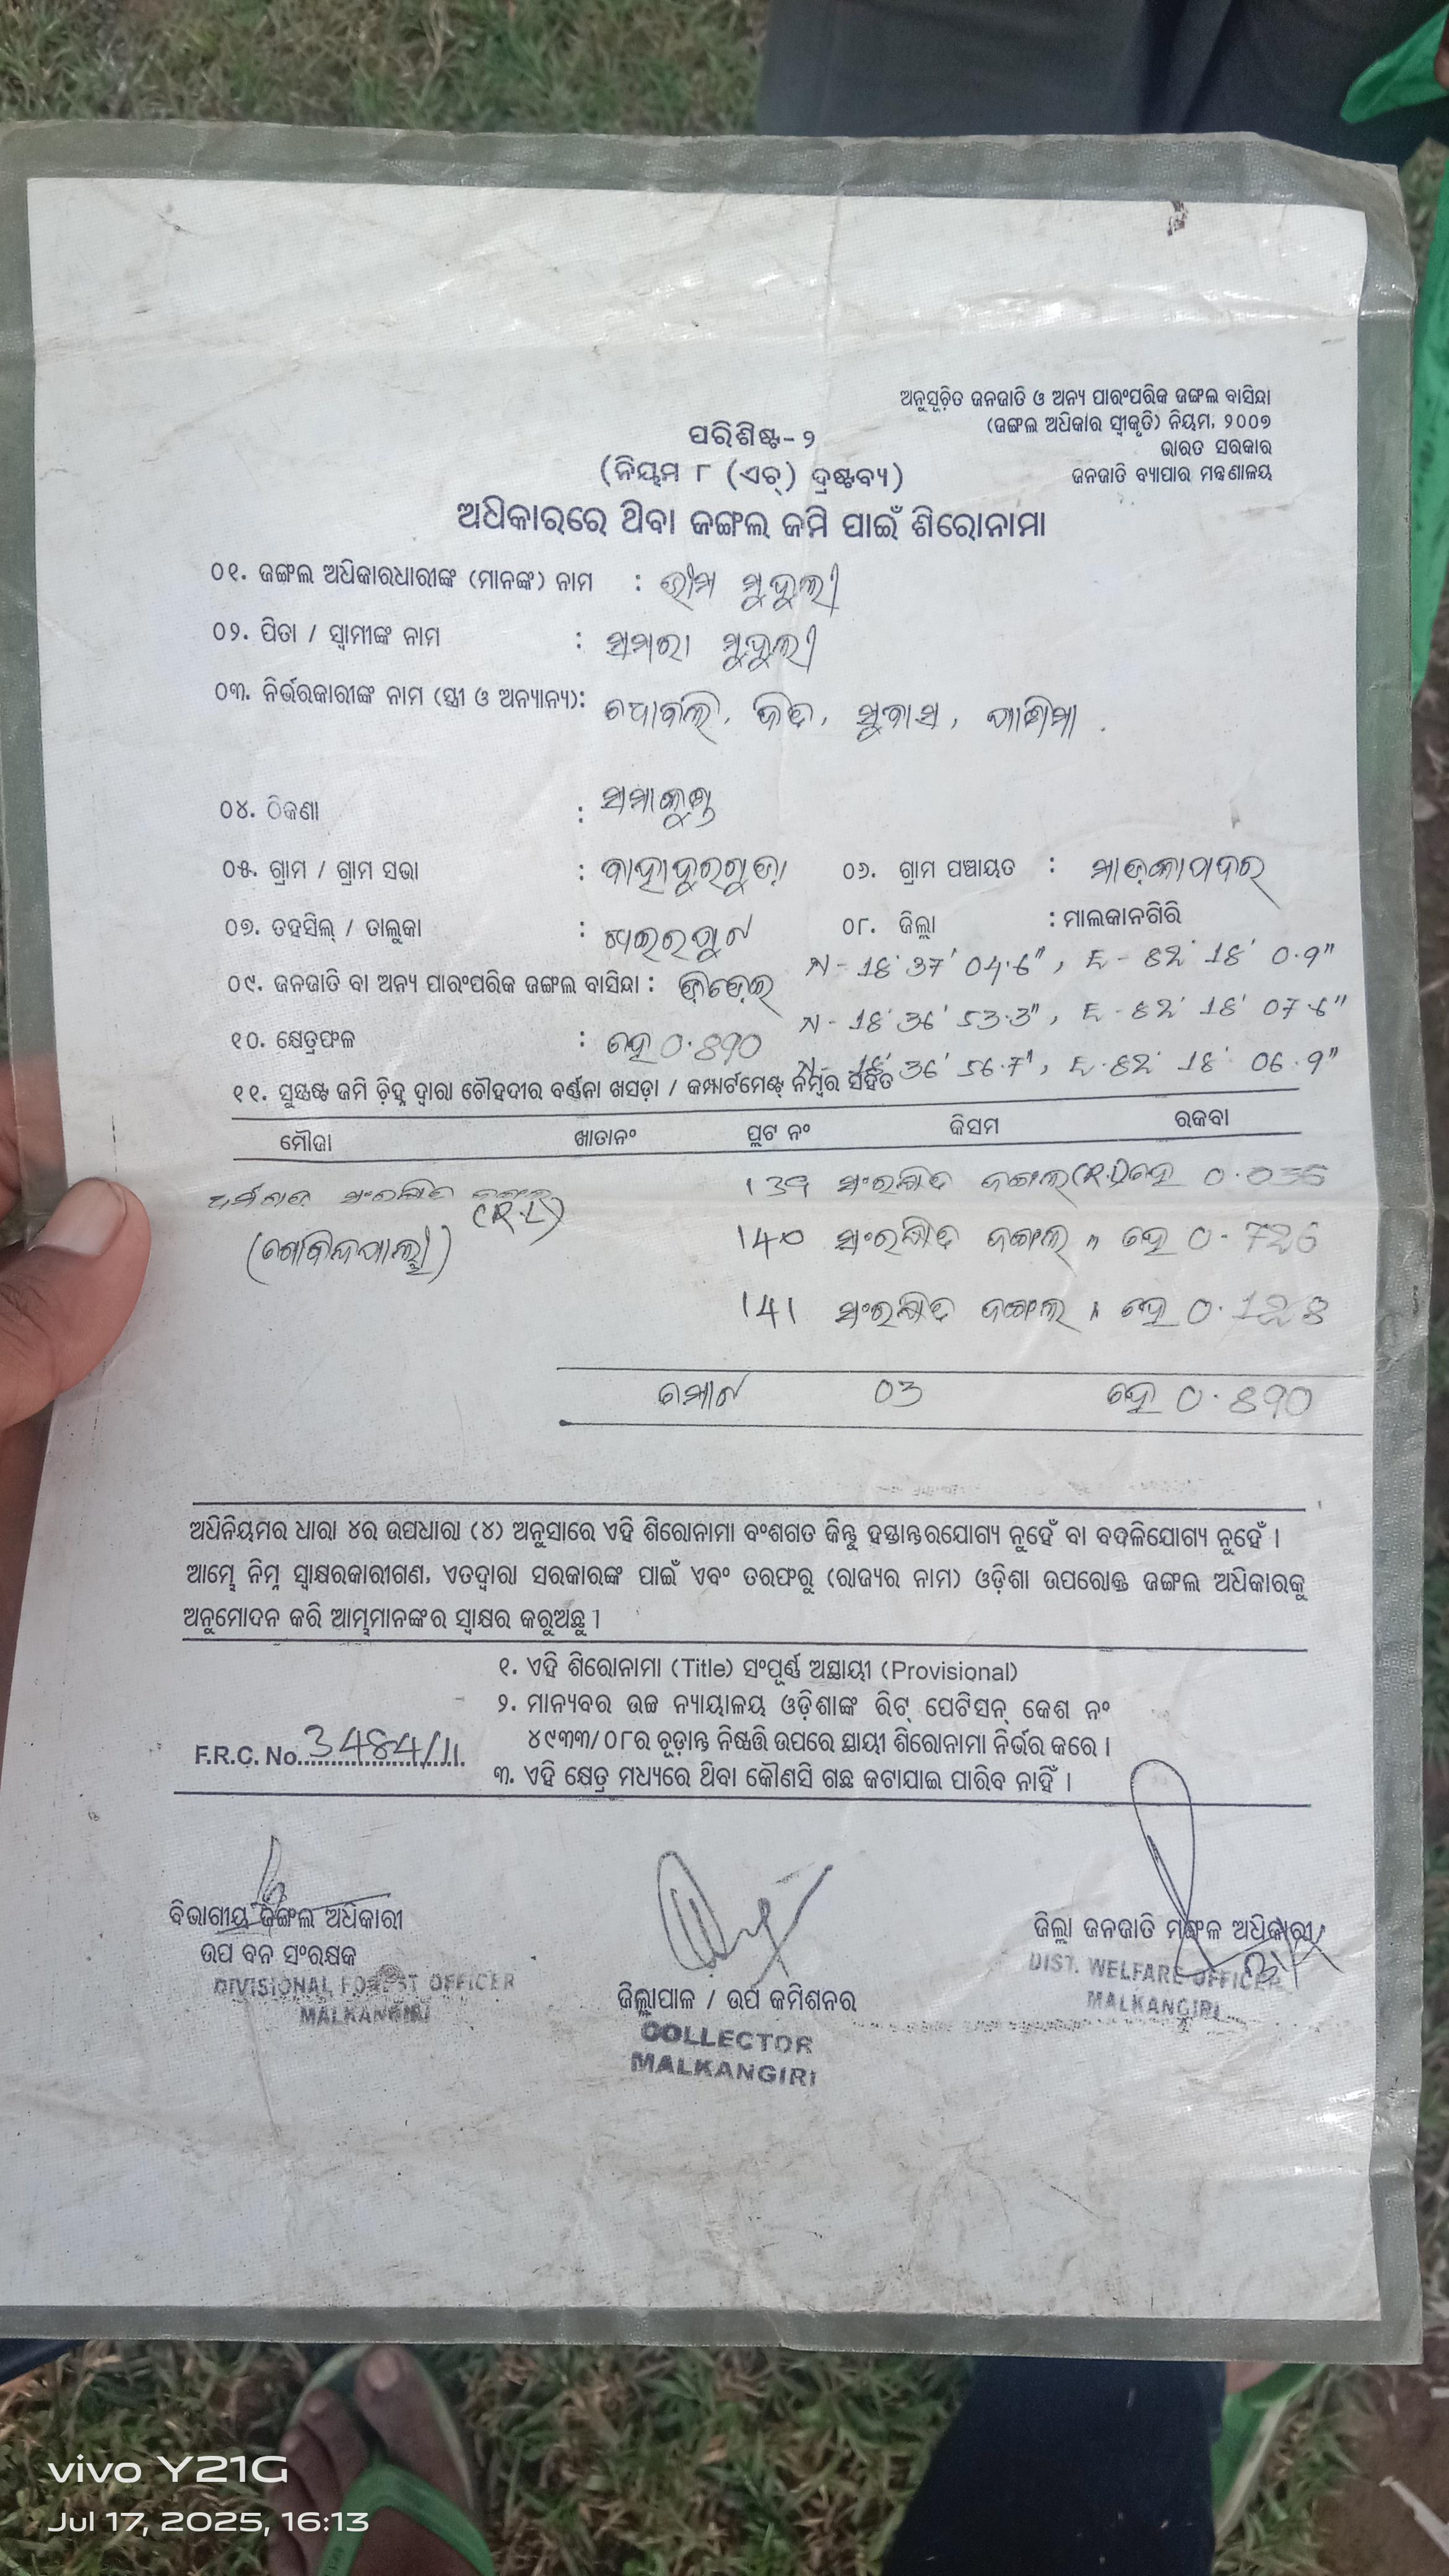 ଅନୁସୂଚିତ ଜନଜାତି ଓ ଅନ୍ୟ ପାରଂପରିକ ଜଙ୍ଗଲ ବାସିନ୍ଦା
(ଜଙ୍ଗଲ ଅଧିକାର ସ୍ୱୀକୃତି) ନିୟମ, ୨୦୦୭
ଭାରତ ସରକାର
ଜନଜାତି ବ୍ୟାପାର ମନ୍ତ୍ରଣାଳୟ
ପରିଶିଷ୍ଟ- ୨
(ନିୟମ ୮ (ଏଚ୍) ଦ୍ରଷ୍ଟବ୍ୟ)
ଅଧିକାରରେ ଥିବା ଜଙ୍ଗଲ ଜମି ପାଇଁ ଶିରୋନାମା
୦୧. ଜଙ୍ଗଲ ଅଧିକାରଧାରୀଙ୍କ (ମାନଙ୍କ) ନାମ : ଭୀମ ମୁଦୁଲୀ
୦୨. ପିତା / ସ୍ୱାମୀଙ୍କ ନାମ : ସମାରା ମୁଦୁଲୀ
୦୩. ନିର୍ଭରକାରୀଙ୍କ ନାମ (ସ୍ତ୍ରୀ ଓ ଅନ୍ୟାନ୍ୟ): ସୁବାସ,
୦୪. ଠିକଣା : ସମାକୁଣ୍ଡ
୦୫. ଗ୍ରାମ / ଗ୍ରାମ ସଭା : ବାହାଦୁରଗୁଡ଼ା ୦୬. ଗ୍ରାମ ପଞ୍ଚାୟତ :
୦୭. ତହସିଲ୍ / ତାଲୁକା : ଖଇରପୁଟ ୦୮. ଜିଲ୍ଲା : ମାଲକାନଗିରି
N - 18° 37' 04.6", E - 82° 18' 0.9"
୦୯. ଜନଜାତି ବା ଅନ୍ୟ ପାରଂପରିକ ଜଙ୍ଗଲ ବାସିନ୍ଦା :
N - 18° 36' 53.3", E - 82° 18' 07.6"
୧୦. କ୍ଷେତ୍ରଫଳ : ହେ 0.890
N - 18° 36' 56.7", E - 82° 18' 06.9"
୧୧. ସୁସ୍ପଷ୍ଟ ଜମି ଚିହ୍ନ ଦ୍ୱାରା ଚୌହଦୀର ବର୍ଣ୍ଣନା ଖସଡ଼ା / କମ୍ପାର୍ଟମେଣ୍ଟ୍ ନମ୍ବର ସହିତ
ମୌଜା ଖାତାନଂ ପ୍ଲଟ ନଂ କିସମ ରକବା
ସଂରକ୍ଷିତ ଜଙ୍ଗଲ (R.L) 139 ସଂରକ୍ଷିତ ଜଙ୍ଗଲ(R.L) ହେ 0.036
(ଗୋବିନ୍ଦପାଲ୍ଲୀ) 140 ସଂରକ୍ଷିତ ଜଙ୍ଗଲ " ହେ 0.726
141 ସଂରକ୍ଷିତ ଜଙ୍ଗଲ " ହେ 0.128
ମୋଟ 03 ହେ 0.890
ଅଧିନିୟମର ଧାରା ୪ର ଉପଧାରା (୪) ଅନୁସାରେ ଏହି ଶିରୋନାମା ବଂଶଗତ କିନ୍ତୁ ହସ୍ତାନ୍ତରଯୋଗ୍ୟ ନୁହେଁ ବା ବଦଳିଯୋଗ୍ୟ ନୁହେଁ ।
ଆମ୍ଭେ ନିମ୍ନ ସ୍ୱାକ୍ଷରକାରୀଗଣ, ଏତଦ୍ୱାରା ସରକାରଙ୍କ ପାଇଁ ଏବଂ ତରଫରୁ (ରାଜ୍ୟର ନାମ) ଓଡ଼ିଶା ଉପରୋକ୍ତ ଜଙ୍ଗଲ ଅଧିକାରକୁ
ଅନୁମୋଦନ କରି ଆମ୍ଭମାନଙ୍କର ସ୍ୱାକ୍ଷର କରୁଅଛୁ ।
୧. ଏହି ଶିରୋନାମା (Title) ସଂପୂର୍ଣ୍ଣ ଅସ୍ଥାୟୀ (Provisional)
୨. ମାନ୍ୟବର ଉଚ୍ଚ ନ୍ୟାୟାଳୟ ଓଡ଼ିଶାଙ୍କ ରିଟ୍ ପେଟିସନ୍ କେଶ ନଂ
୪୯୩୩/୦୮ର ଚୂଡ଼ାନ୍ତ ନିଷ୍ପତ୍ତି ଉପରେ ସ୍ଥାୟୀ ଶିରୋନାମା ନିର୍ଭର କରେ ।
F.R.C. No. 3484/11
୩. ଏହି କ୍ଷେତ୍ର ମଧ୍ୟରେ ଥିବା କୌଣସି ଗଛ କଟାଯାଇ ପାରିବ ନାହିଁ ।
ବିଭାଗୀୟ ଜଙ୍ଗଲ ଅଧିକାରୀ
ଉପ ବନ ସଂରକ୍ଷକ
DIVISIONAL FOREST OFFICER
MALKANGIRI
ଜିଲ୍ଲାପାଳ / ଉପ କମିଶନର
COLLECTOR
MALKANGIRI
ଜିଲ୍ଲା ଜନଜାତି ମଙ୍ଗଳ ଅଧିକାରୀ
DIST. WELFARE OFFICER
MALKANGIRI
vivo Y21G
Jul 17, 2025, 16:13